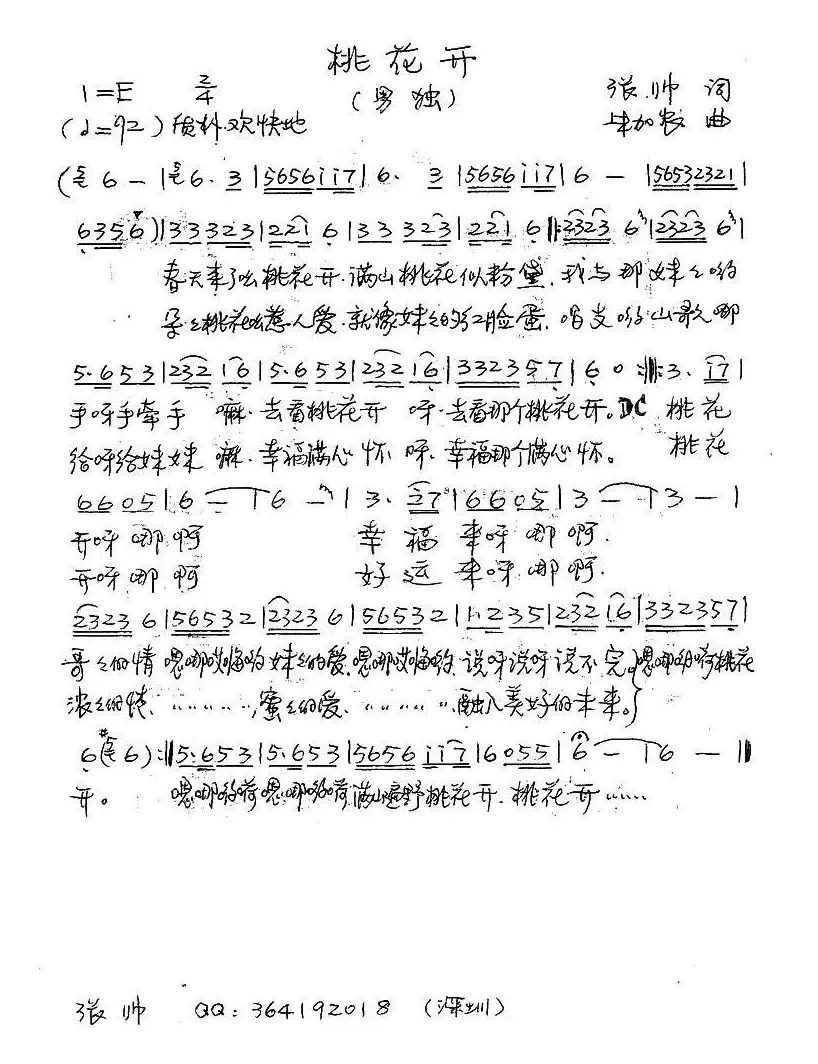 桃花开
1=E 2/4 (男独) 张帅 词
(♩=92) 质朴.欢快地 曲
6 — | 6· 3 | 5656 i i 7 | 6· 3 | 5656 i i 7 | 6 — | 56532321 |
6356) | 33323 | 221 6 | 33 323 | 221 6 |: 2323 6 | 2323 6 |
春天来了么桃花开.满山桃花似粉黛.我与那妹々哟
朵々桃花么惹人爱.就像妹々的红脸蛋.唱支哟山歌哪
5·653 | 232 16 | 5·653 | 232 16 | 332357 | 6 0 :|: 3· i7 |
手呀手牵手 嘛.去看桃花开 呀.去看那个桃花开。DC 桃花
给呀给妹妹 嘛.幸福满心怀 呀.幸福那个满心怀。 桃花
6605 | 6 — | 6 — | 3· 27 | 6605 | 3 — | 3 — |
开呀哪啊 幸福来呀哪啊.
开呀哪啊 好运来呀哪啊.
2323 6 | 56532 | 2323 6 | 56532 | 1235 | 232 16 | 332357 |
哥々的情 嗯哪哎 哟 妹々的爱.嗯哪哎 哟.说呀说呀说不完。嗯哪哟嗬桃花
浓々的情、……,蜜々的爱、…….融入美好的未来。
6 (6) :| 5·653 | 5·653 | 5656 i i 7 | 6055 | 6 — | 6 — ‖
开。 嗯哪哟嗬嗯哪哟嗬满山遍野桃花开.桃花开……
张帅 QQ:364192018 (深圳)